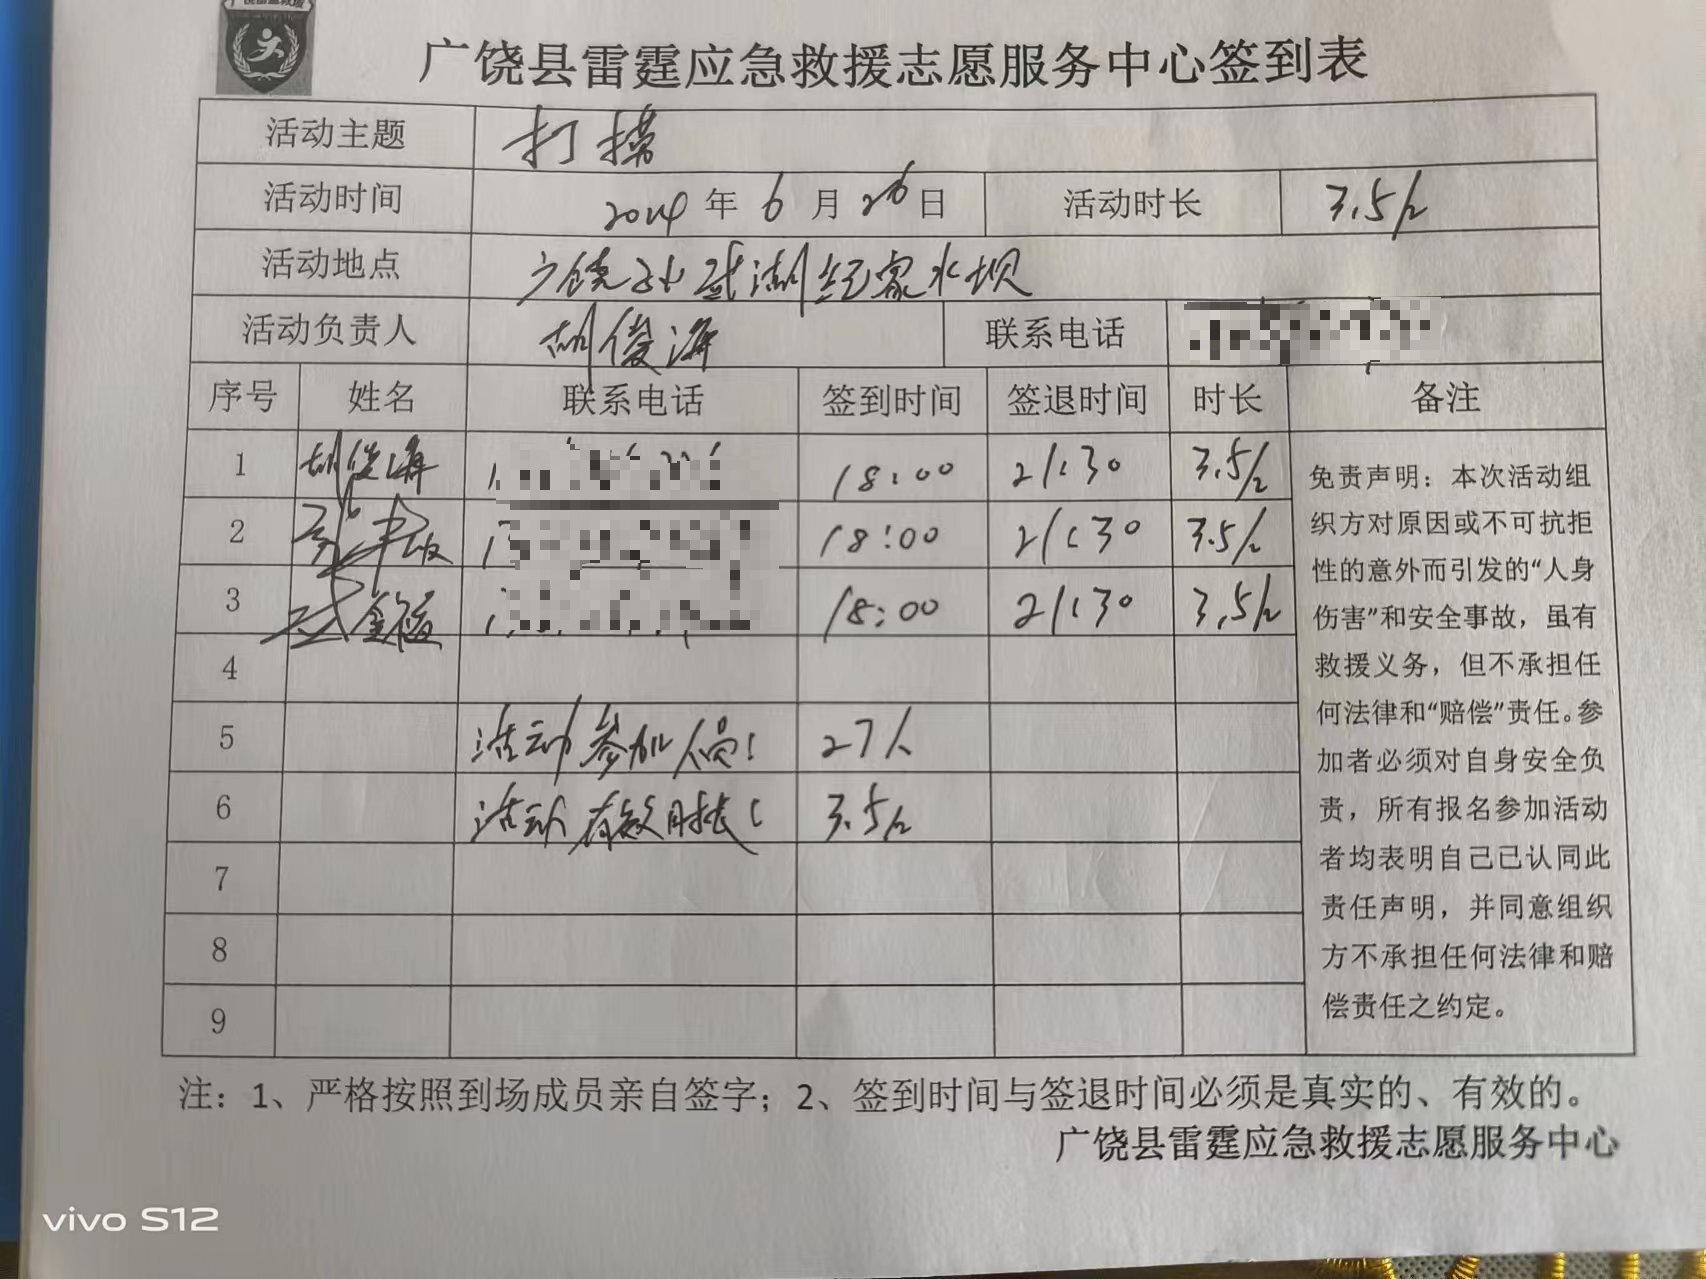 广饶县雷霆应急救援志愿服务中心签到表
活动主题 打捞
活动时间 2024年6月26日 活动时长 3.5h
活动地点 广饶孙武湖纪家水坝
活动负责人 胡俊海 联系电话
序号 姓名 联系电话 签到时间 签退时间 时长 备注
1 胡俊海 18:00 21:30 3.5h
2 18:00 21:30 3.5h
3 18:00 21:30 3.5h
4
5 活动参加人员: 27人
6 活动有效时长: 3.5h
7
8
9
免责声明：本次活动组
织方对原因或不可抗拒
性的意外而引发的“人身
伤害”和安全事故，虽有
救援义务，但不承担任
何法律和“赔偿”责任。参
加者必须对自身安全负
责，所有报名参加活动
者均表明自己已认同此
责任声明，并同意组织
方不承担任何法律和赔
偿责任之约定。
注：1、严格按照到场成员亲自签字；2、签到时间与签退时间必须是真实的、有效的。
广饶县雷霆应急救援志愿服务中心
vivo S12